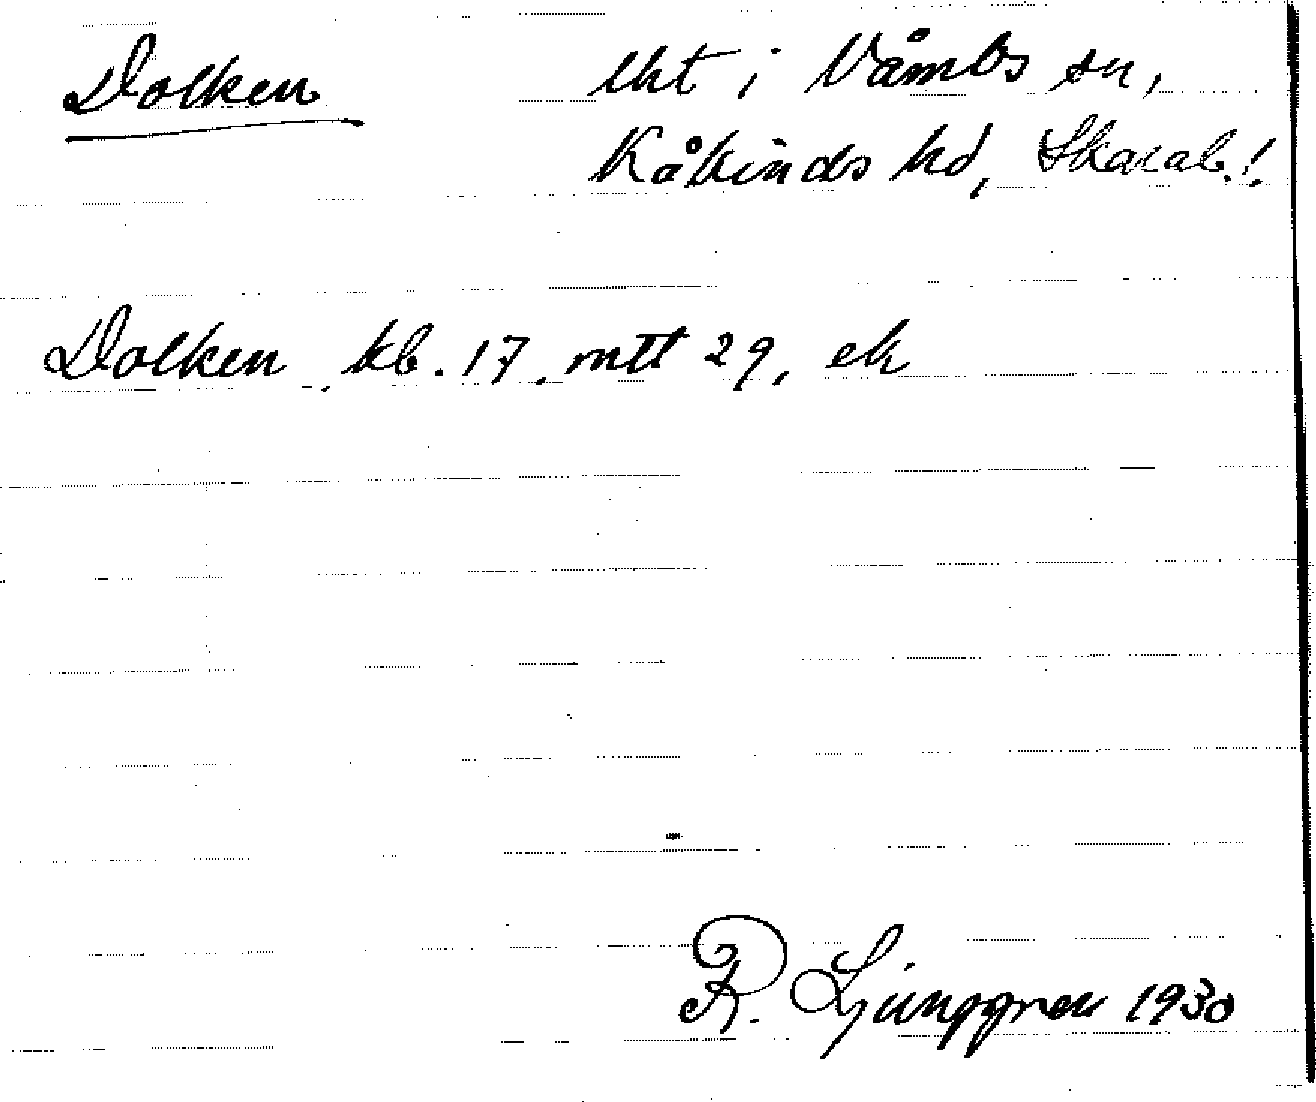 Dolken lht i Våmbs sn,
Kåkinds hd, Skarab.!
Dolken kb. 17, mtt 29, ek
R. Ljunggren 1930